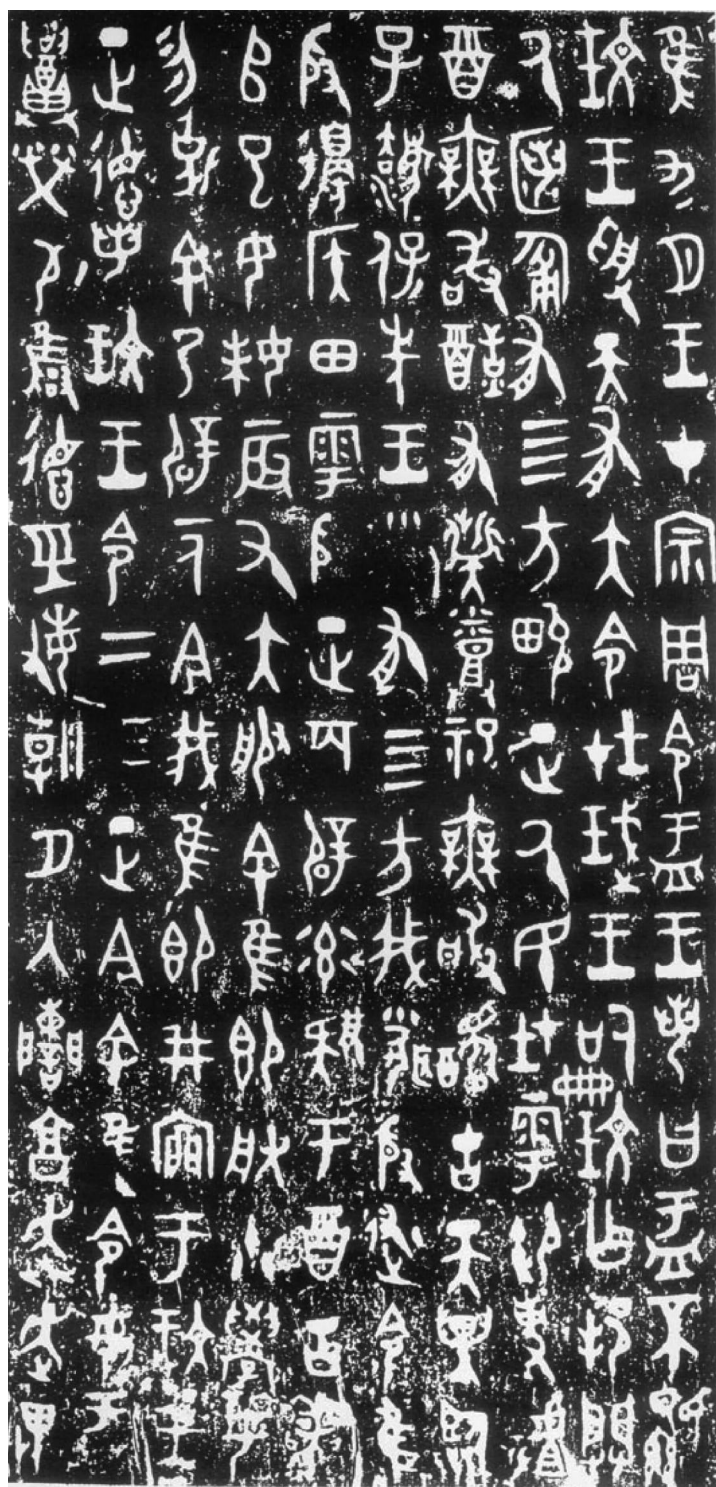 隹九月王才宗周令盂王若曰盂不顯
玟王受天有大令在珷王嗣玟乍邦闢
厥匿匍有四方畯正厥民在雩御事
酉無敢酖有祡烝祀無敢古天異臨
子法保先王有四方我聞殷述令隹
殷邊侯田雩殷正百辟率肄于酉古喪
𠂤已女妹辰又大服余隹即朕小學女
勿余乃辟一人今我隹即井禀于玟王
正德若玟王令二三正今余隹令女盂
召榮敬雍德巠敏朝夕入讕享奔走畏